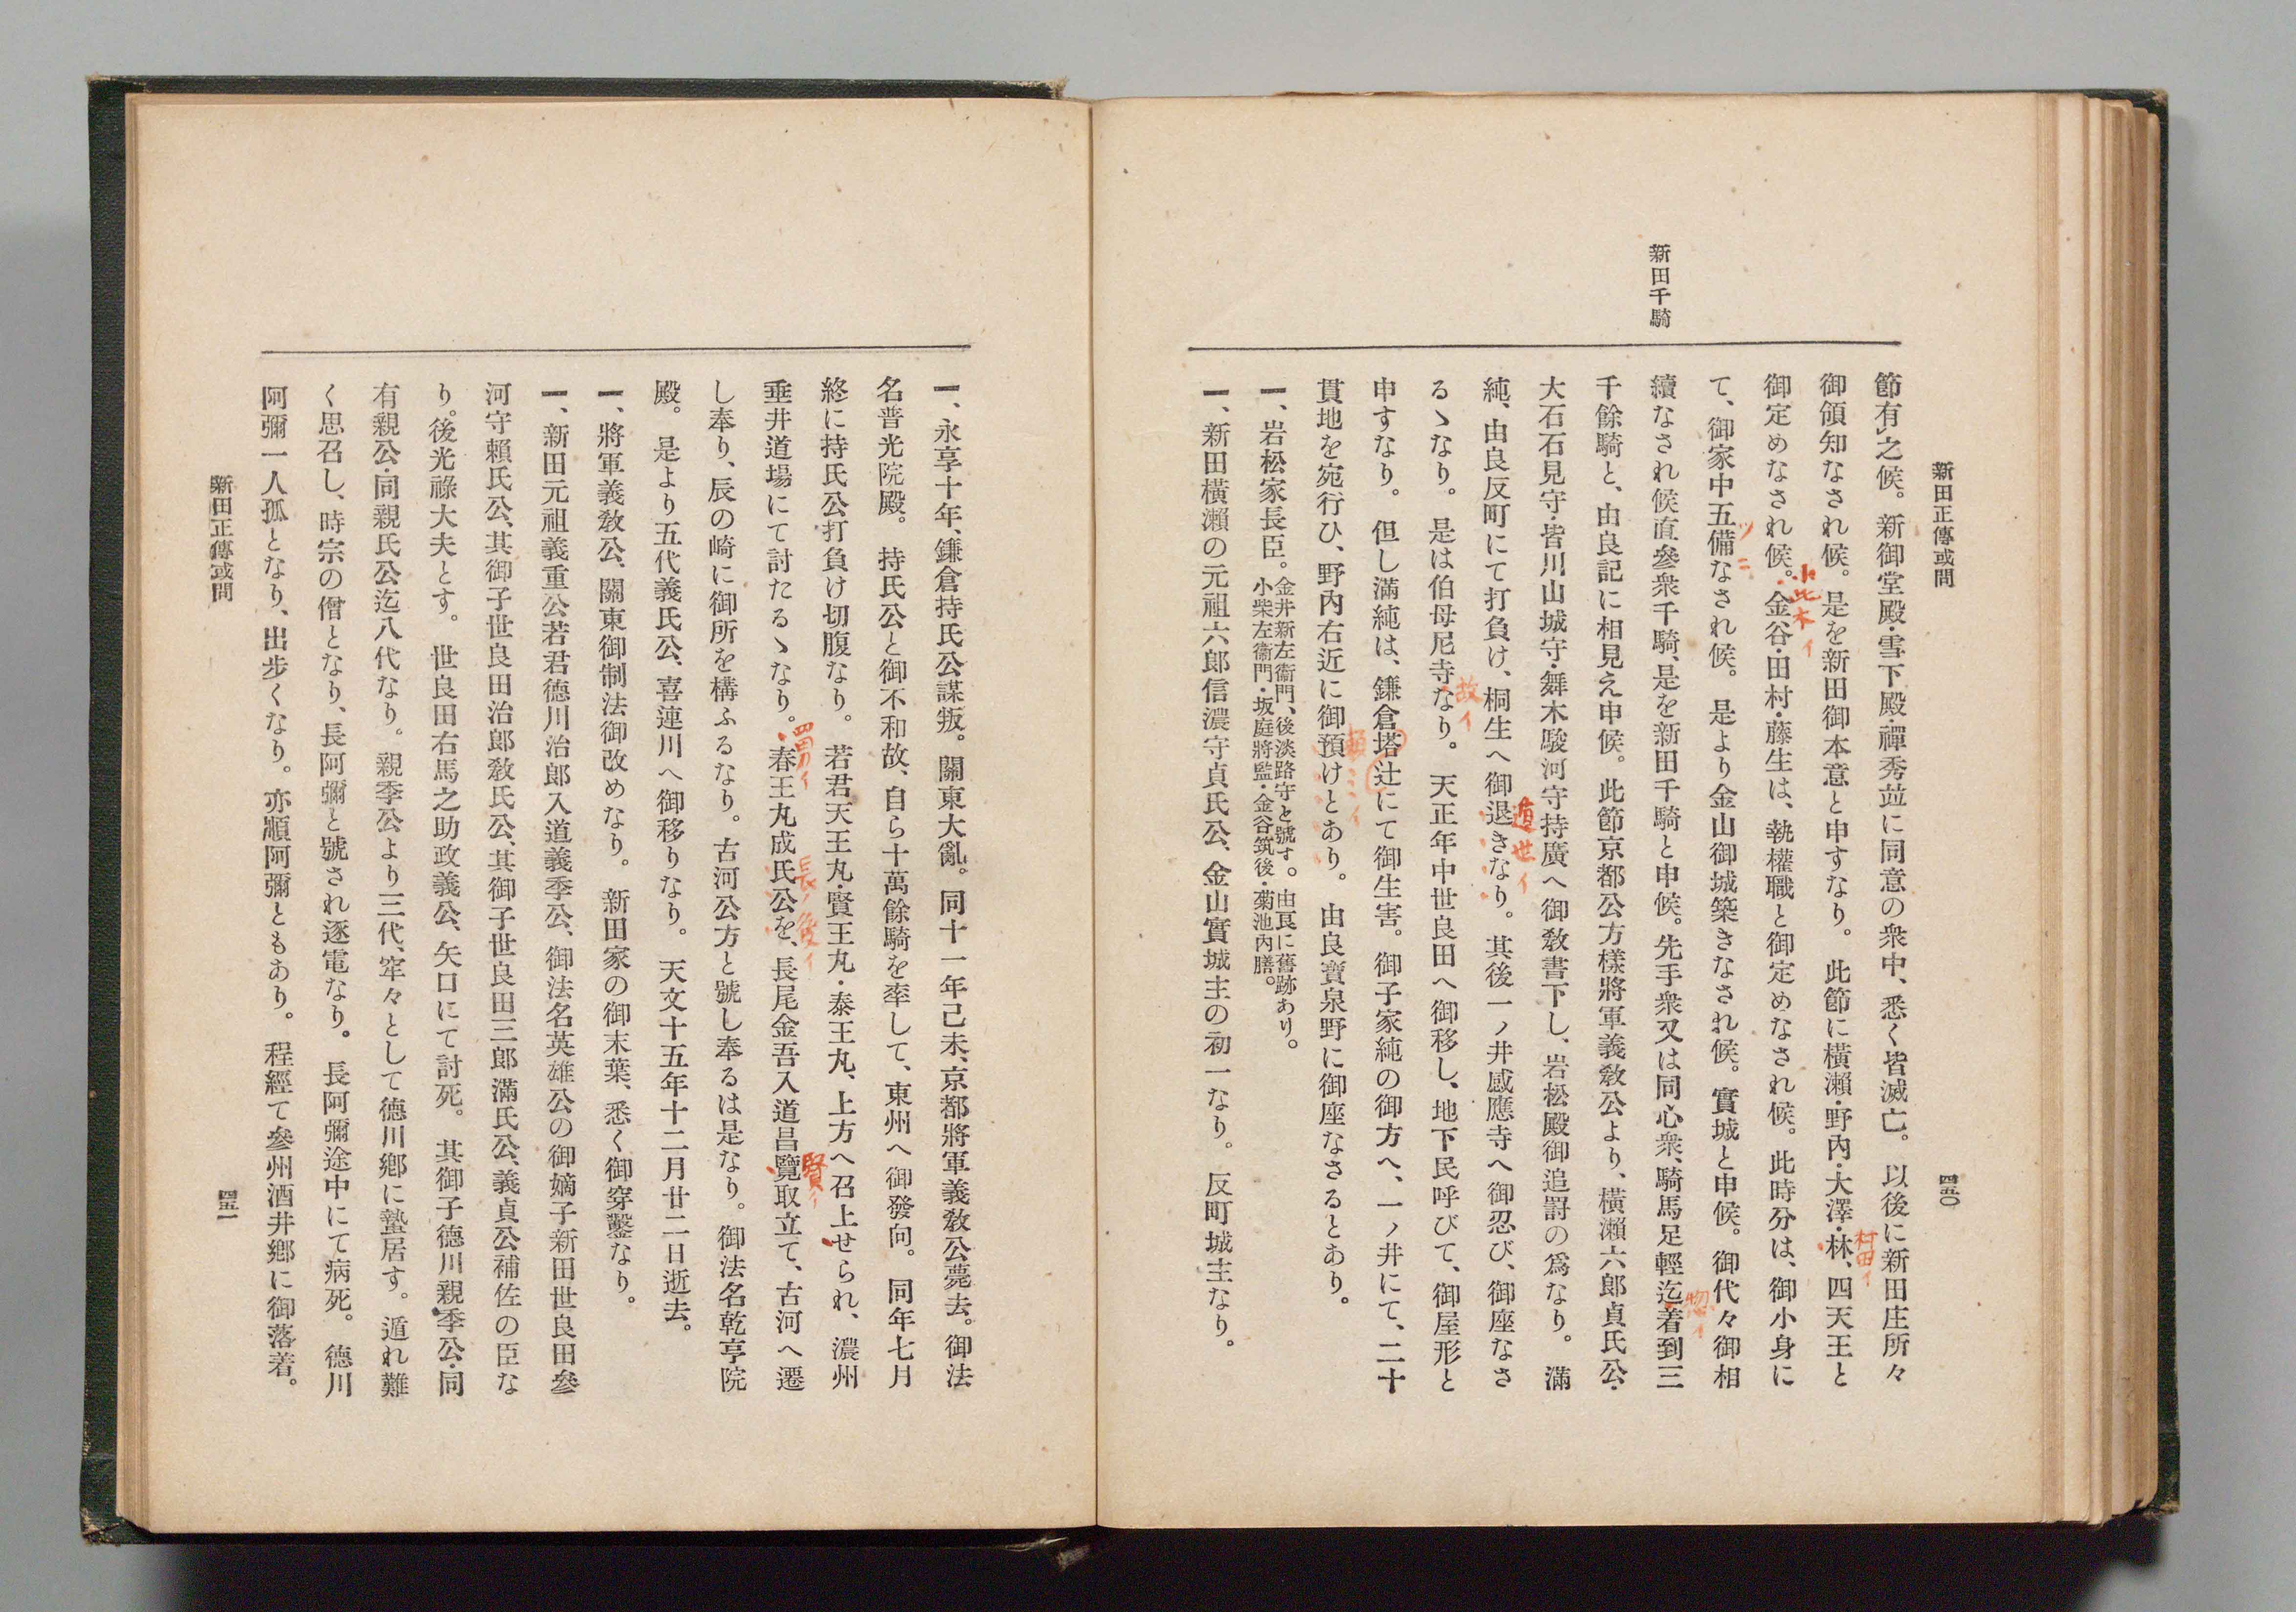 新田正傳或問
四五〇
新田千騎
節有㆑之候。新御堂殿・雪下殿・禪秀竝に同意の衆中、悉く皆滅亡。以後に新田庄所々
御領知なされ候。是を新田御本意と申すなり。此節に横瀨・野內・大澤・林、四天王と
村田イ
御定めなされ候。金谷・田村・藤生は、執權職と御定めなされ候。此時分は、御小身に
小此木イ
て、御家中五備なされ候。是より金山御城築きなされ候。實城と申候。御代々御相
ツニ
續なされ候直參衆千騎、是を新田千騎と申候。先手衆又は同心衆、騎馬足輕迄着到三
惣イ
千餘騎と、由良記に相見え申候。此節京都公方樣將軍義敎公より、橫瀨六郞貞氏公・
大石石見守・皆川山城守・舞木駿河守持廣へ御敎書下し、岩松殿御追罸の爲なり。滿
純、由良反町にて打負け、桐生へ御退きなり。其後一ノ井感應寺へ御忍び、御座なさ
遁世イ
るゝなり。是は伯母尼寺なり。天正年中世良田へ御移し、地下民呼びて、御屋形と
故イ
申すなり。但し滿純は、鎌倉塔辻にて御生害。御子家純の御方へ、一ノ井にて、二十
貫地を宛行ひ、野內右近に御預けとあり。由良寶泉野に御座なさるとあり。
賴ミイ
一、岩松家長臣。金井新左衞門、後淡路守と號す。由良に舊跡あり。
小柴左衞門・坂庭將監・金谷筑後・菊池內膳。
一、新田橫瀨の元祖六郞信濃守貞氏公、金山實城主の初一なり。反町城主なり。
一、永享十年、鎌倉持氏公謀叛。關東大亂。同十一年己未、京都將軍義敎公薨去。御法
名普光院殿。持氏公と御不和故、自ら十萬餘騎を率して、東州へ御發向。同年七月
終に持氏公打負け切腹なり。若君天王丸・賢王丸・泰王丸、上方へ召上せられ、濃州
垂井道場にて討たるゝなり。春王丸成氏公を、長尾金吾入道昌覽取立て、古河へ遷
長ノ後イ
賢イ
し奉り、辰の崎に御所を構ふるなり。古河公方と號し奉るは是なり。御法名乾亨院
殿。是より五代義氏公、喜連川へ御移りなり。天文十五年十二月廿二日逝去。
一、將軍義敎公、關東御制法御改めなり。新田家の御末葉、悉く御穿鑿なり。
一、新田元祖義重公若君德川治郞入道義季公、御法名英雄公の御嫡子新田世良田參
河守賴氏公、其御子世良田治郞敎氏公、其御子世良田三郞滿氏公、義貞公補佐の臣な
り。後光祿大夫とす。世良田右馬之助政義公、矢口にて討死。其御子德川親季公・同
有親公・同親氏公迄八代なり。親季公より三代、牢々として德川鄕に蟄居す。遁れ難
く思召し、時宗の僧となり、長阿彌と號され逐電なり。長阿彌途中にて病死。德川
阿彌一人孤となり、出步くなり。亦願阿彌ともあり。程經て參州酒井鄕に御落着。
新田正傳或問
四五一